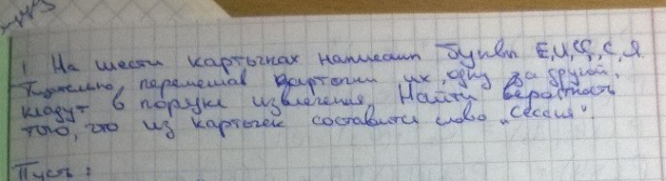 1 На шести карточках написаны буквы Е,И,С,С,С,Я.
Тщательно перемешав карточки их одну за другой,
кладут в порядке извлечения. Найти вероятность
того, что из карточек составится слово „сессия".
Пусть: